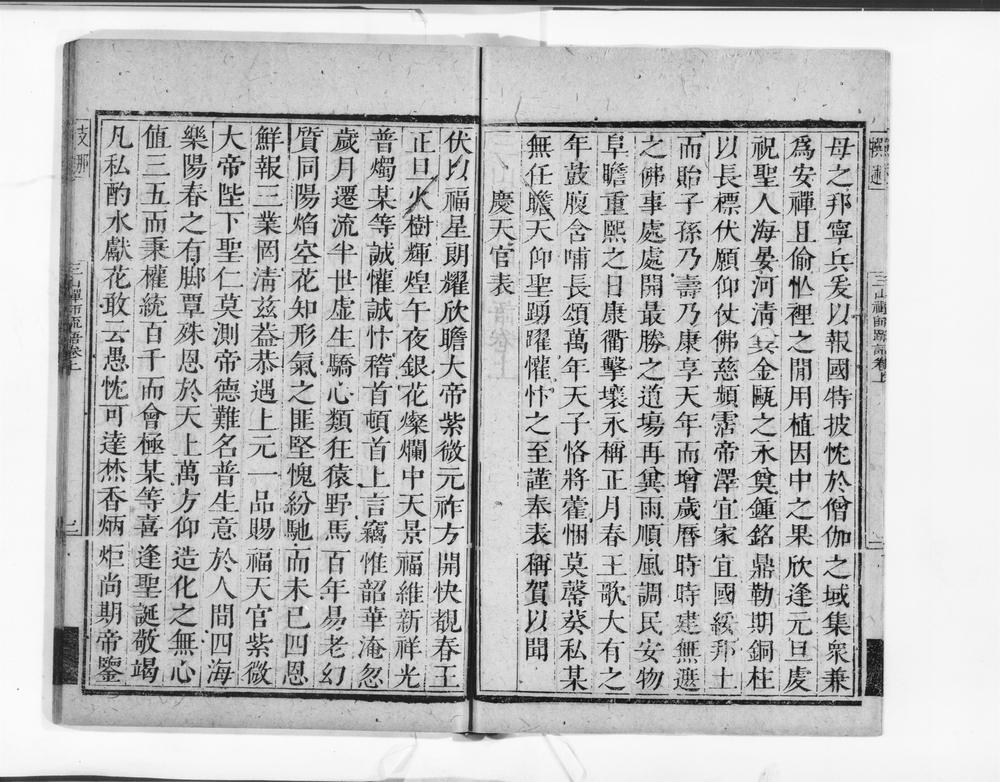 母之邦寧兵爰以報國特披忱於僧伽之域集衆兼
爲安禪且偷忙裡之閒用植因中之果欣逢元旦虔
祝聖人海晏河清兵金甌之永奠鍾銘鼎勒期銅柱
以長標伏願仰仗佛慈頻霑帝澤宜家宜國綏邦土
而貽子孫乃壽乃康享天年而增歲曆時時建無遮
之佛事處處開最勝之道場再兾雨順風調民安物
阜瞻重熙之日康衢擊壤永稱正月春王歌大有之
年鼓腹含哺長頌萬年天子恪將藿悃莫罄葵私某
無任瞻天仰聖踴躍懽忭之至謹奉表稱賀以聞
慶天官表
伏以福星朗耀欣瞻大帝紫微元祚方開快覩春王
正旦火樹輝煌午夜銀花燦爛中天景福維新祥光
普燭某等誠懽誠忭稽首頓首上言竊惟韶華淹忽
歲月遷流半世虛生驕心類狂猿野馬百年易老幻
質同陽焰空花知形氣之匪堅愧紛馳而未已四恩
鮮報三業罔清兹益恭遇上元一品賜福天官紫微
大帝陛下聖仁莫測帝德難名普生意於人間四海
樂陽春之有脚覃殊恩於天上萬方仰造化之無心
值三五而秉權統百千而會極某等喜逢聖誕敬竭
凡私酌水獻花敢云愚忱可達焚香炳炬尚期帝鑒